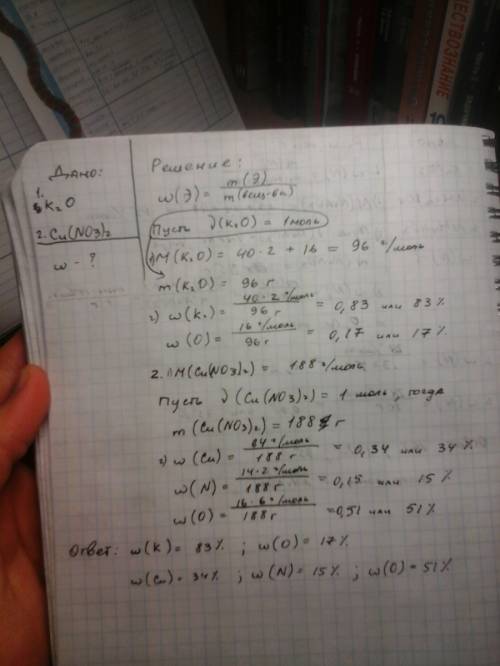 Дано:
1.
K₂O
2. Cu(NO3)₂
w - ?
Решение:
w(Э) = m(Э) / m(вещ-ва)
Пусть ν(K₂O) = 1моль
1) M(K₂O) = 40·2 + 16 = 96 г/моль
m(K₂O) = 96 г
2) w(K₂) = 40·2 г/моль / 96 г = 0,83 или 83%
w(O) = 16 г/моль / 96 г = 0,17 или 17%
2. 1) M(Cu(NO3)₂) = 188 г/моль
Пусть ν(Cu(NO3)₂) = 1 моль, тогда
m(Cu(NO3)₂) = 188 г
2) w(Cu) = 64 г/моль / 188 г = 0,34 или 34%
w(N) = 14·2 г/моль / 188 г = 0,15 или 15%
w(O) = 16·6 г/моль / 188 г = 0,51 или 51%
Ответ: w(K) = 83% ; w(O) = 17%
w(Cu) = 34% ; w(N) = 15% ; w(O) = 51%
ЧЕСТВОЗНАНИЕ
10